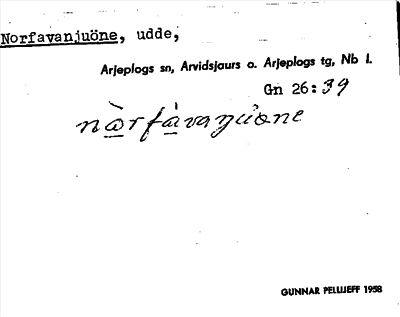 Norfavanjuöne, udde,
Arjeplogs sn, Arvidsjaurs o. Arjeplogs tg, Nb l.
Gn 26:39
GUNNAR PELLIJEFF 1958